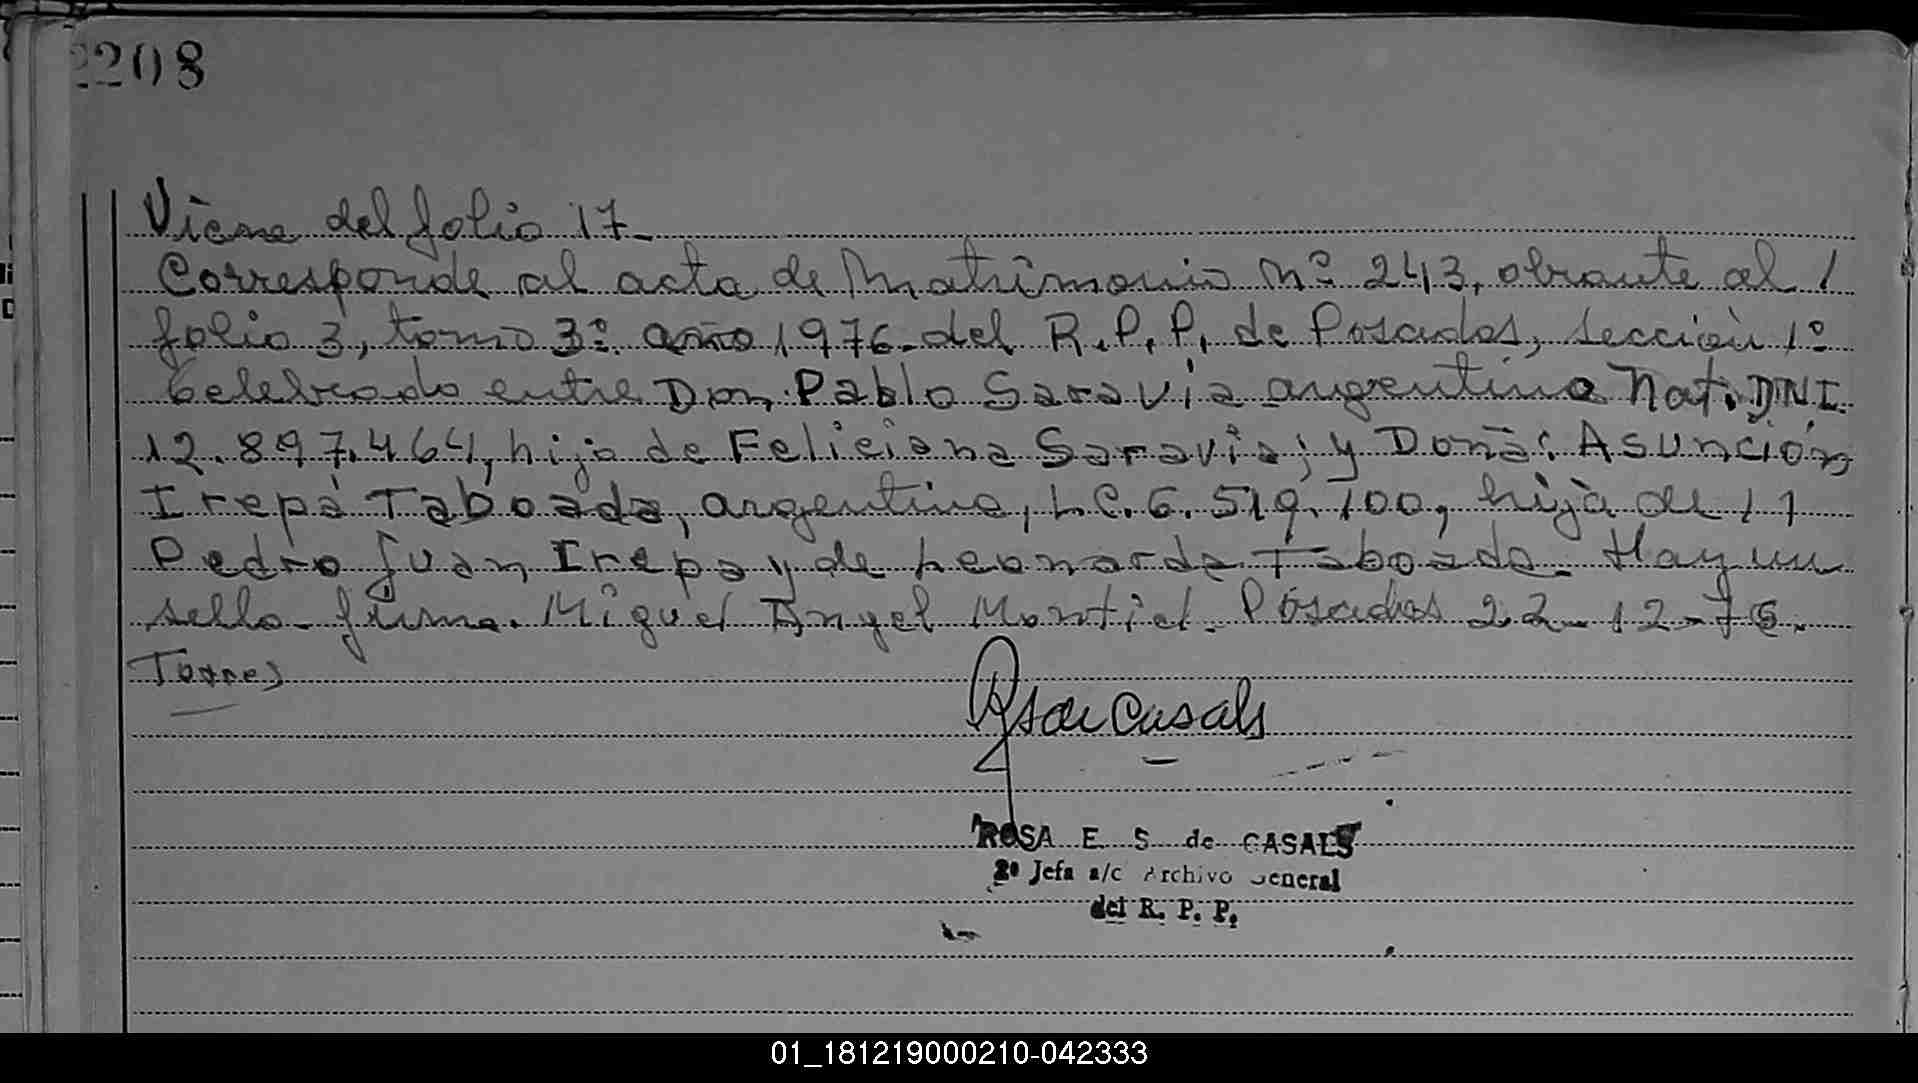 2208
Viene del folio 17-
Corresponde al acta de Matrimonio Nº 243, obrante al /
folio 3, tomo 3º. año 1976- del R.P.P. de Posadas, sección 1º
Celebrado entre Don: Pablo Saravia argentino Nat. DNI.
12.897.464, hijo de Feliciana Saravia; y Doña: Asunción
Irepá Taboada, argentina, L.C. 6.519.100, hija de / /
Pedro Juan Irepa y de Leonarda Taboada- Hay un
sello- firma. Miguel Angel Montiel- Posadas 22-12-76.
Torres
RS de Casals
ROSA E S de CASALS
2º Jefa a/c Archivo General
del R. P. P.
01_181219000210-042333